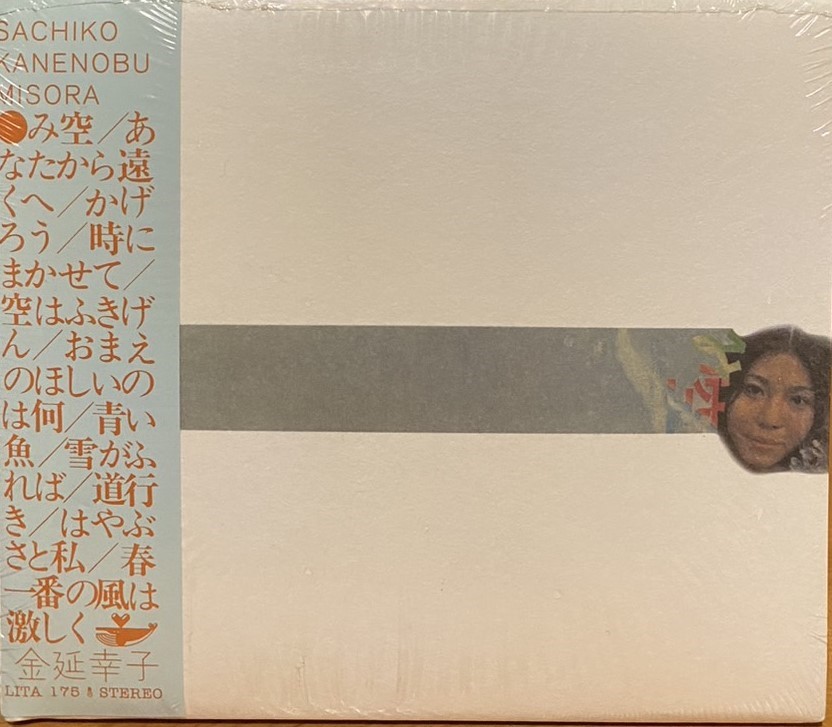 SACHIKO
KANENOBU
MISORA
●み空／あ
なたから遠
くへ／かげ
ろう／時に
まかせて／
空はふきげ
ん／おまえ
のほしいの
は何／青い
魚／雪がふ
れば／道行
き／はやぶ
さと私／春
一番の風は
激しく
金延幸子
LITA 175 STEREO
み空